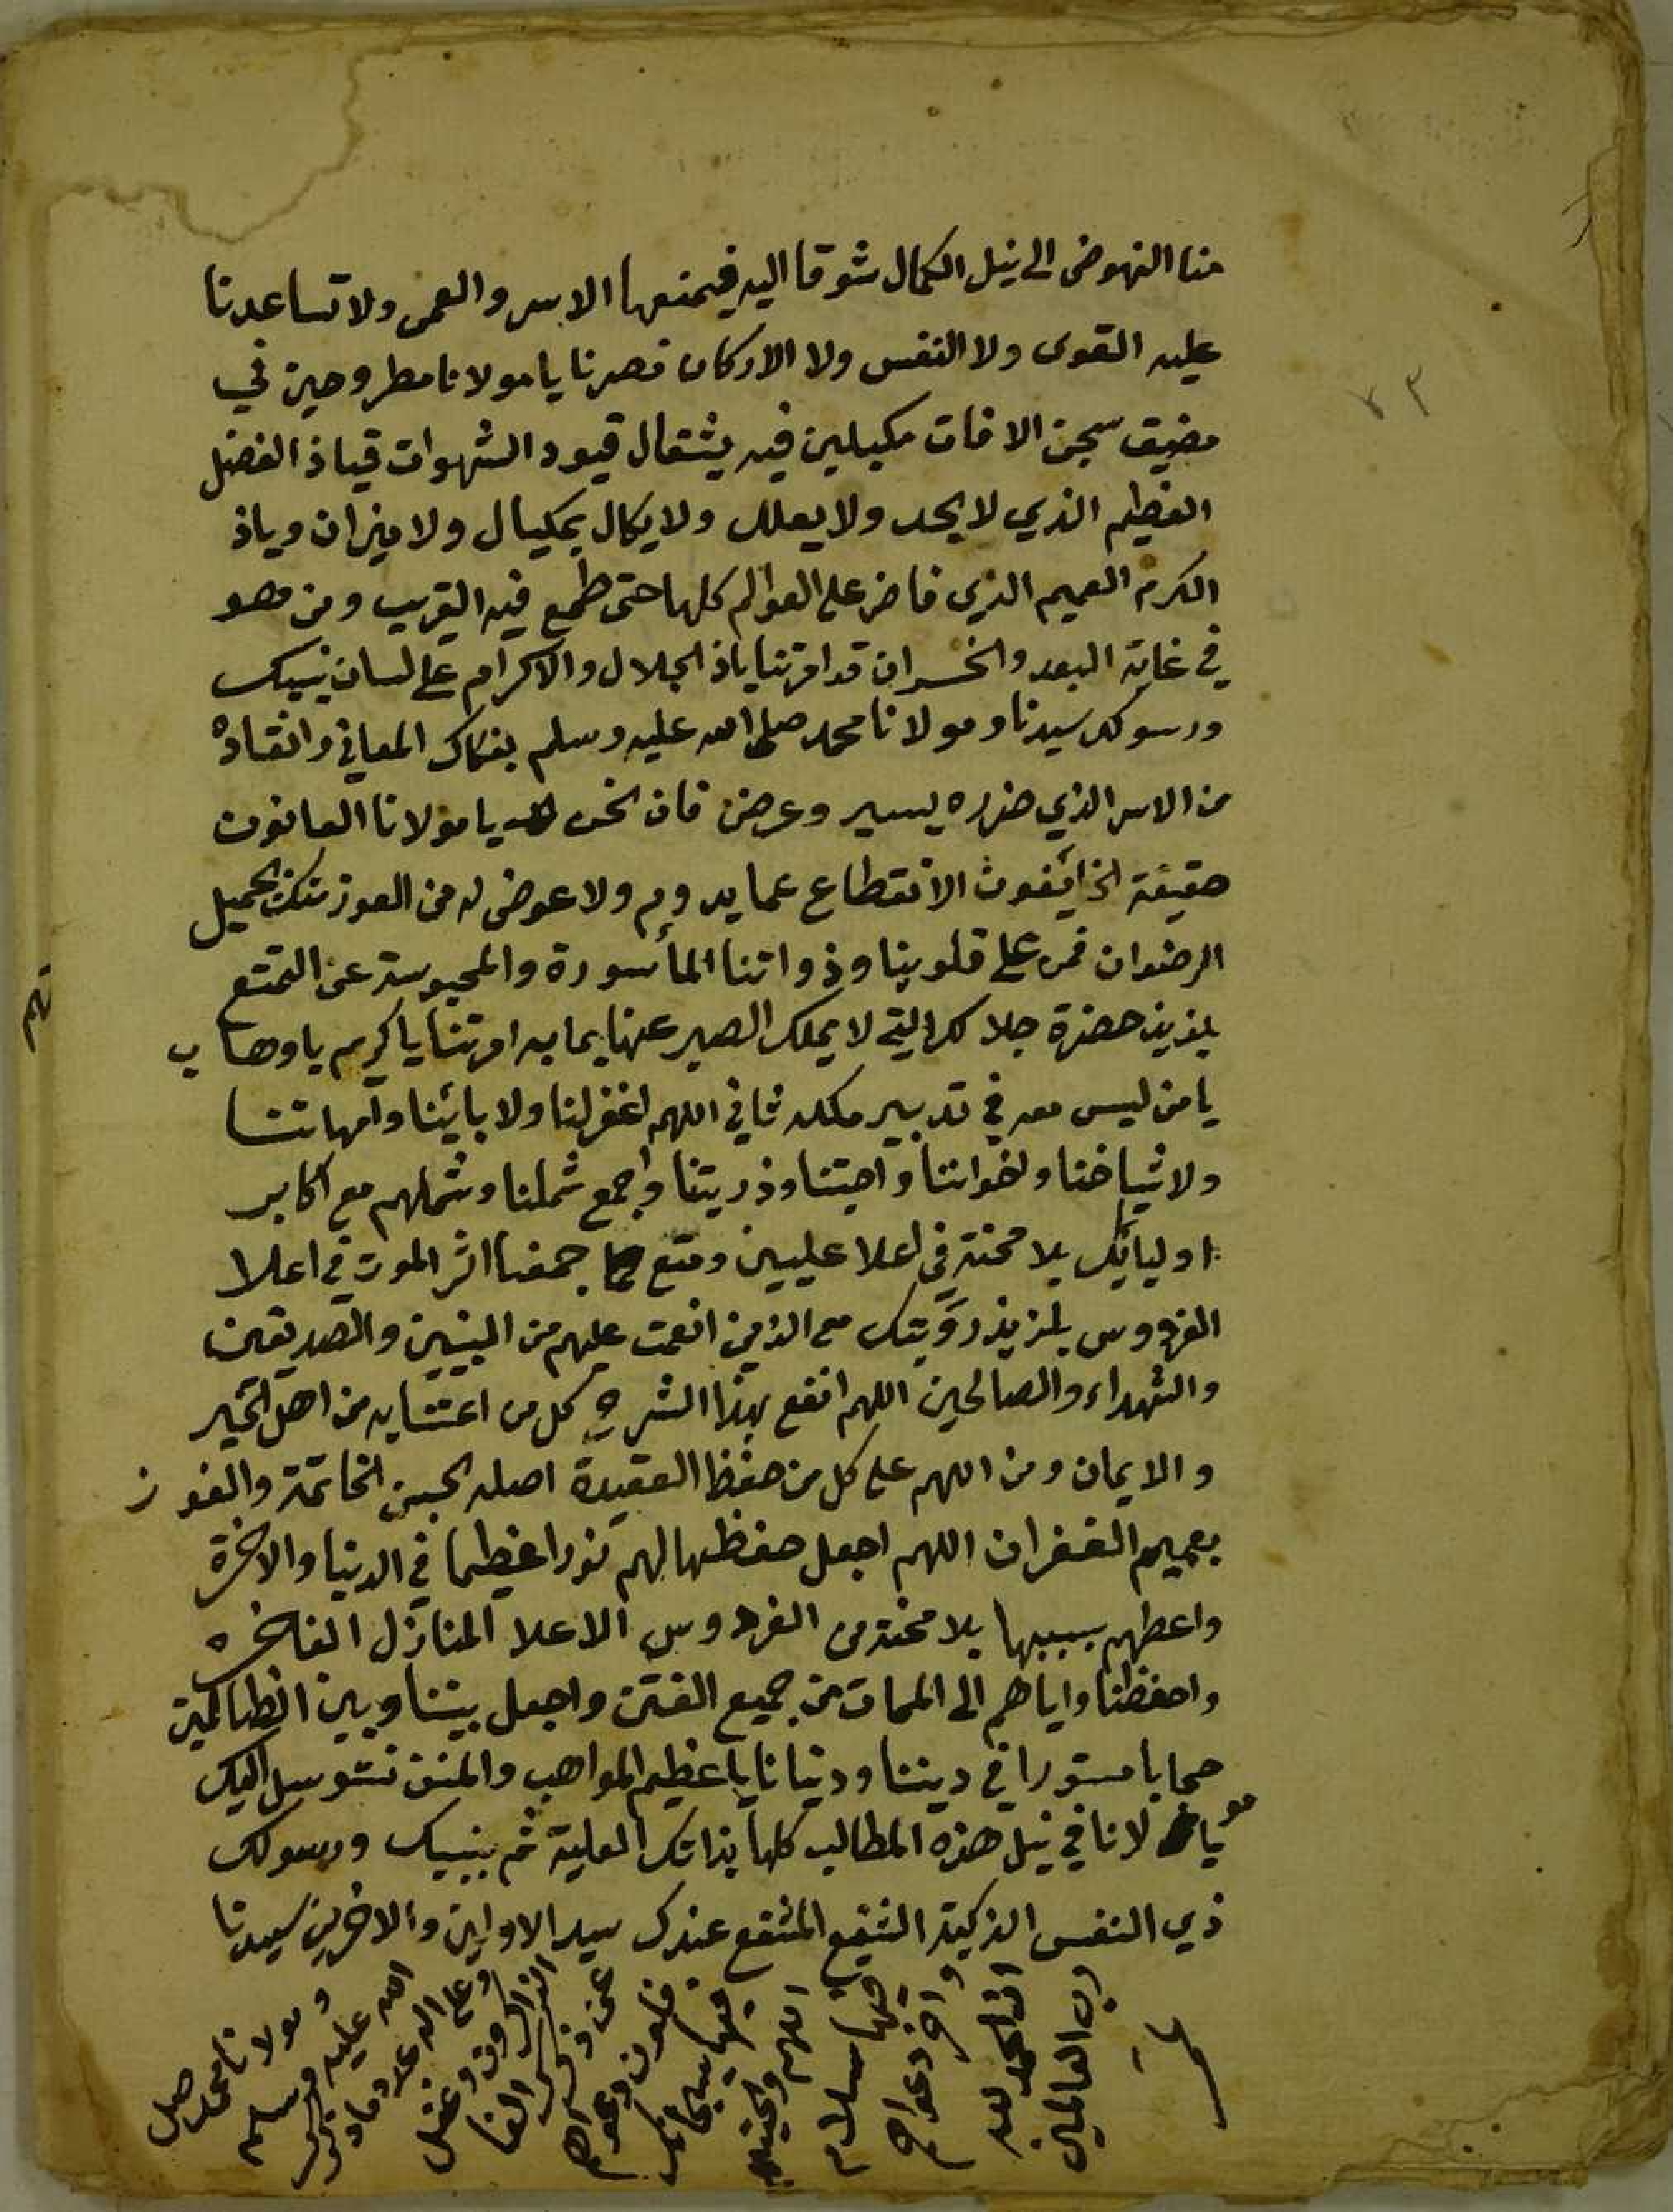 منا النهوض الى نيل الكمال شوقا اليه فيمنعها الاسر والعمى ولا تساعدنا
عليه القوى ولا النفس ولا الاركان فصرنا يا مولانا مطروحين في
مضيق سجن الافات مكبلين فيه بثقال قيود الشهوات فياذ الفضل
العظيم الذي لا يحد ولا يعلل ولا يكال بمكيال ولا ميزان وياذ
الكرم العميم الذي فاض على العوالم كلها حتى طمع فيه القريب ومن هو
في غاية البعد والخسران قد امرتنا ياذ الجلال والاكرام على لسان نبيك
ورسولك سيدنا ومولانا محمد صلى الله عليه وسلم بفكاك المعاني وانقاذه
من الاسر الذي ضرره يسير وعرض فان نحن يا مولانا العانون
حقيقة الخائفون الانقطاع عما يدوم ولا عوض له من الفوز منك بجميل
الرضوان فمن على قلوبنا وذواتنا المأسورة والمحبوسة عن التمتع
بلذيذ حضرة جلالك التي لا يملك الصبر عنها بما به امرتنا يا كريم يا وهاب
يا من ليس معه في تدبير ملكه ثاني اللهم اغفر لنا ولابائنا وامهاتنا
ولاشياخنا واخواننا واحبتنا وذريتنا واجمع شملنا وشملهم مع اكابر
اوليائك بلا محنة في اعلا عليين ومتع جمعنا اثر الموت في اعلا
الفردوس بلذيذ رؤيتك مع الذين انعمت عليهم من النبيين والصديقين
والشهداء والصالحين اللهم انفع بهذا الشرح كل من اعتنا به من اهل الخير
والايمان ومن اللهم على كل من حفظ العقيدة اصله بحسن الخاتمة والفوز
بعميم الغفران اللهم اجعل حفظها لهم نورا عظيما في الدنيا والاخرة
واعطهم بسببها بلا محنة من الفردوس الاعلا المنازل الفاخره
واحفظنا واياهم الى الممات من جميع الفتن واجعل بيننا وبين الظالمين
حجابا مستورا في ديننا ودنيانا يا عظيم المواهب والمنن نتوسل اليك
يا مولانا في نيل هذه المطالب كلها بذاتك العلية ثم بنبيك ورسولك
ذي النفس الزكية الشفيع المشفع عندك سيد الاولين والاخرين سيدنا
ومولانا محمد صلى
الله عليه وسلم
وعلى اله عدد ما ذكرك
الذاكرون وغفل
عن ذكرك الغا
فلون دعواهم
فيها سبحانك
اللهم وتحيتهم
فيها سلام
واخر دعواهم
ان الحمد لله
رب العالمين